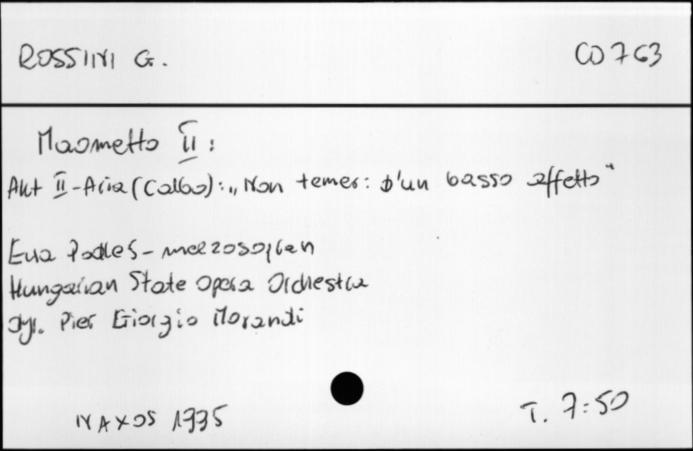 ROSSINI G. CD 763
Maometto II:
Akt II - Aria (Calbo): „Non temer: d'un basso affetto"
Ewa Podleś - mezzosopran
Hungarian State Opera Orchestra
dyr. Pier Giorgio Morandi
NAXOS 1995 T. 7:50